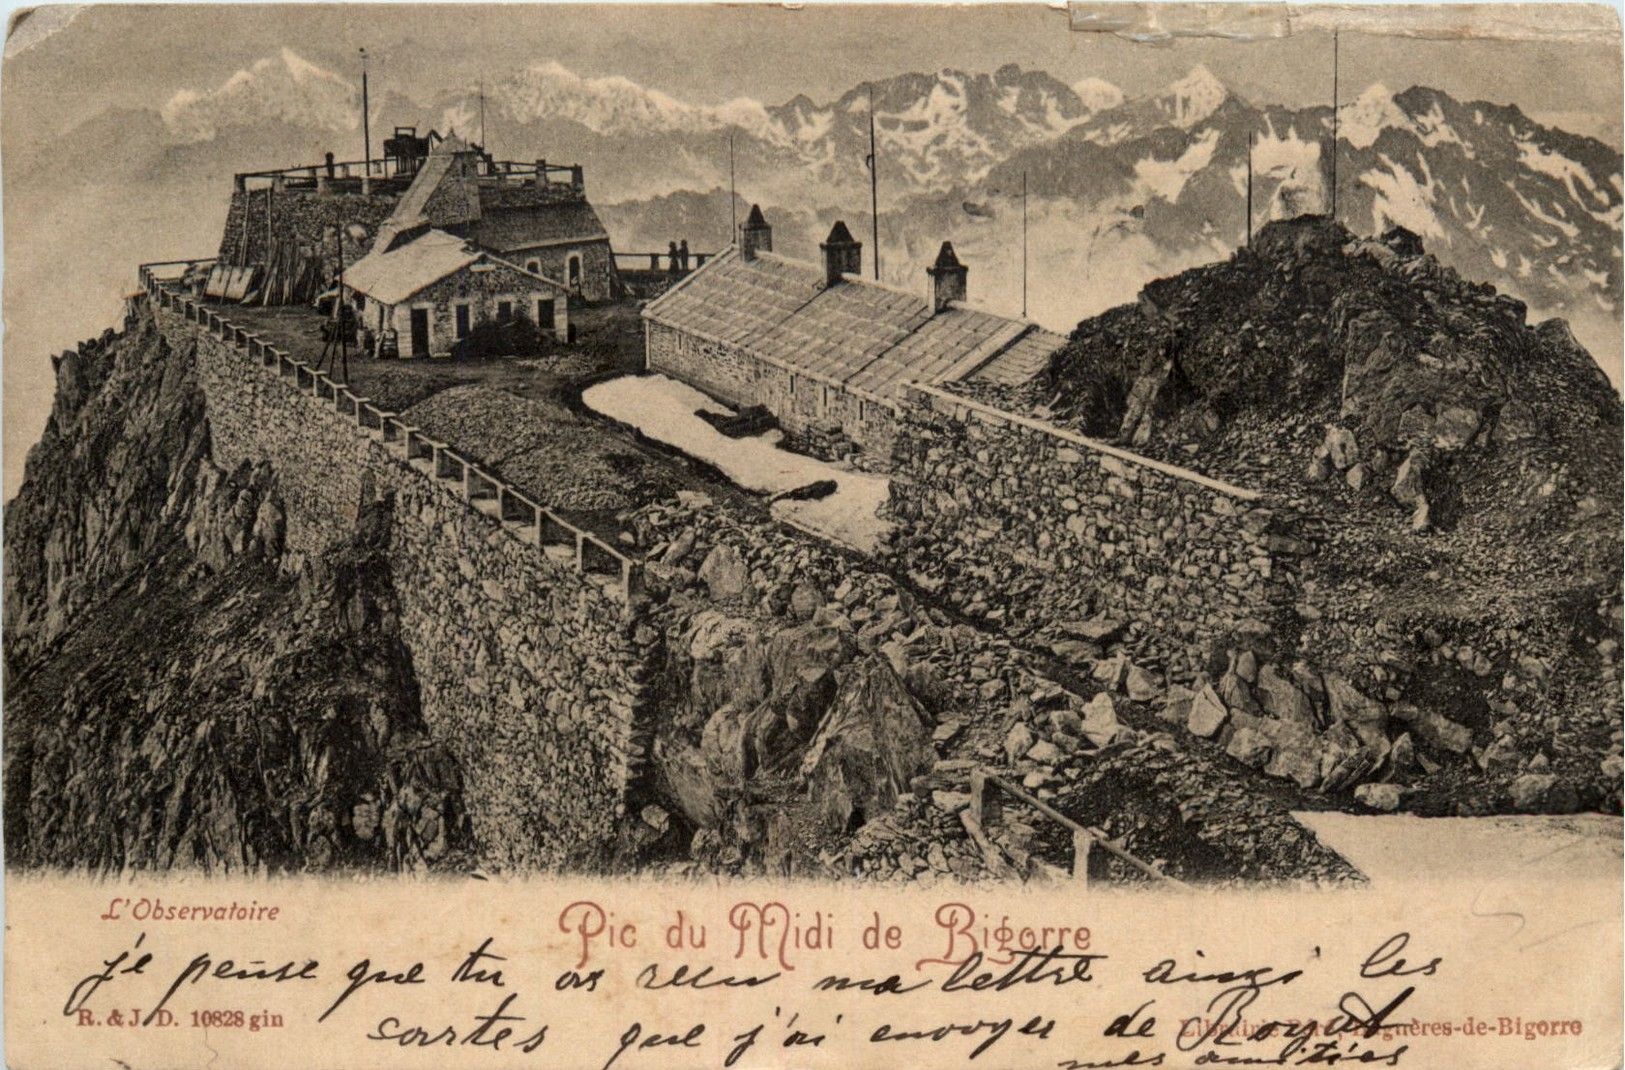 L'Observatoire
Pic du Midi de Bigorre
je pense que tu as recu ma lettre ainsi les
R. & J. D. 10828 gin
cartes que j'ai envoyer de Royat
Librairie Bagnères-de-Bigorre
mes amitiés